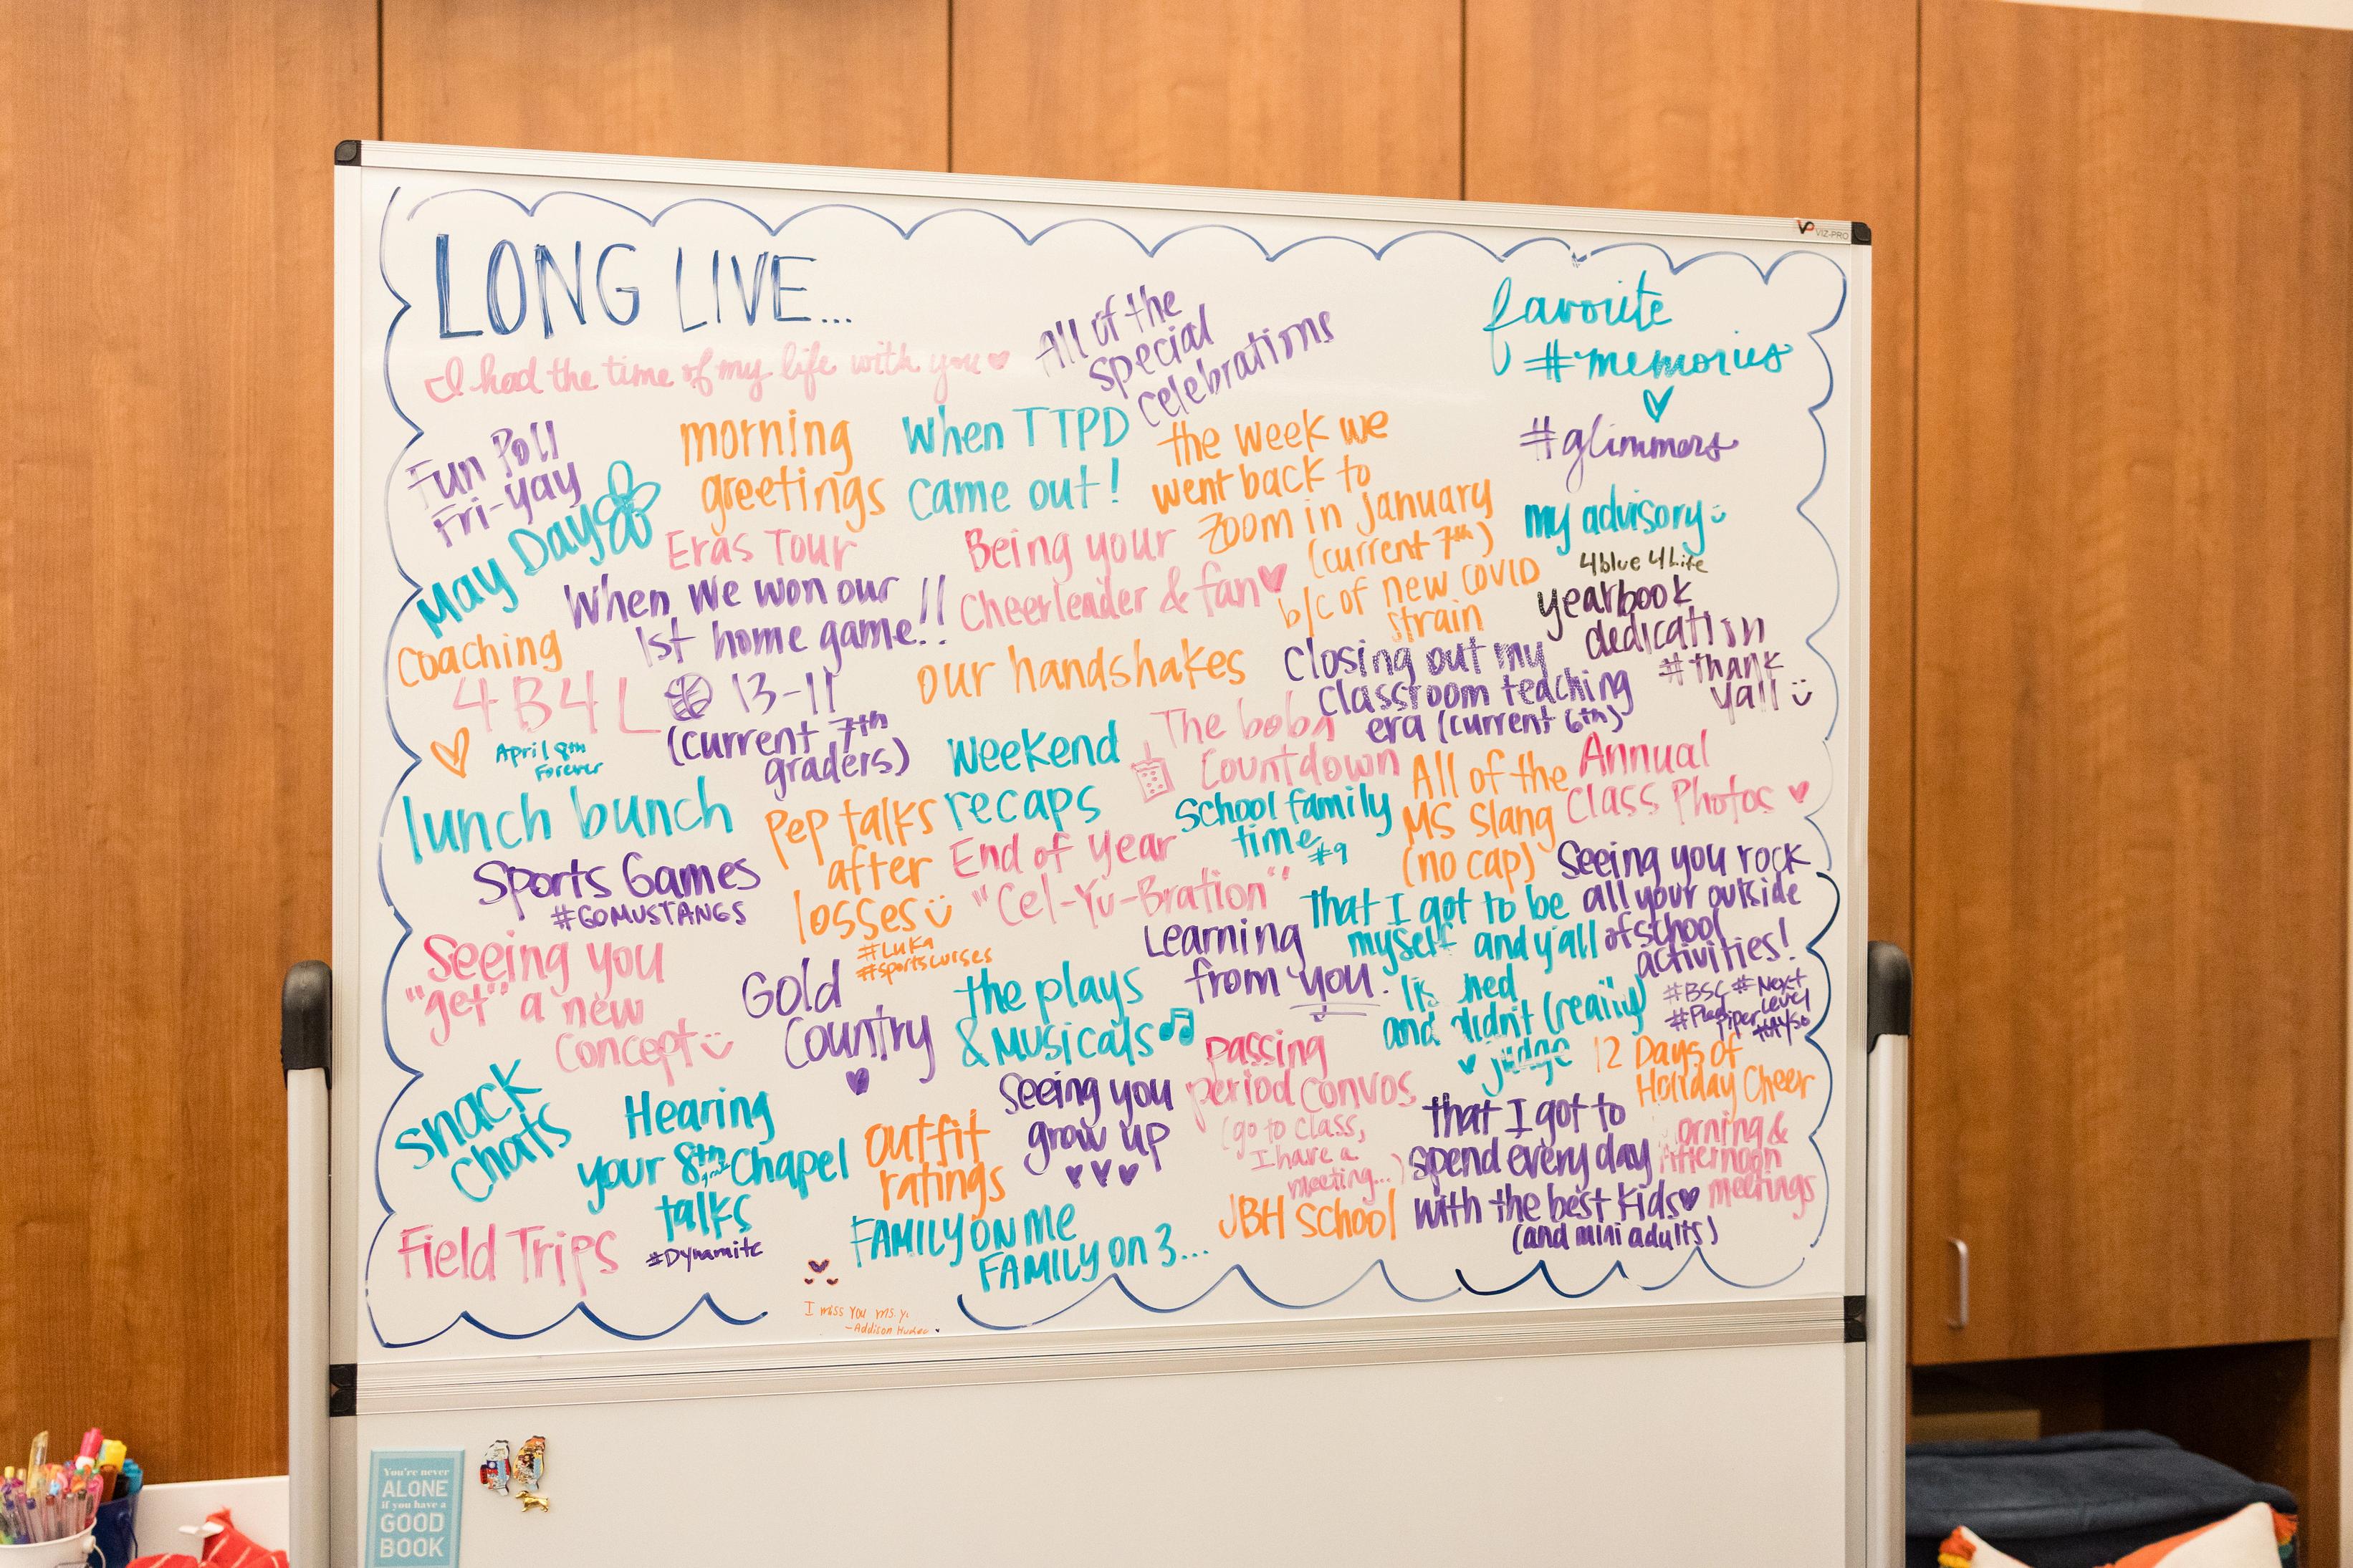 VIZ-PRO
LONG LIVE...
I had the time of my life with you
All of the
special
celebrations
favorite
#memories
#glimmers
Fun Poll
Fri-yay
morning
greetings
When TTPD
came out!
the week we
went back to
Zoom in January
(current 7th)
b/c of new COVID
strain
my advisory
4blue 4Life
May Day
Eras Tour
Being your
Cheerleader & fan
yearbook
dedication
#thank
yall
When we won our
1st home game!!
13-11
(current 7th
graders)
Coaching
4B4L
April 8th
Forever
our handshakes
Closing out my
classroom teaching
era (current 6th)
weekend
recaps
The boba
Countdown
All of the
MS Slang
(no cap)
Annual
Class Photos
lunch bunch
Pep talks
after
losses
#Luka
#sportscurses
School family
time
#9
End of Year
"Cel-Yu-Bration"
Seeing you rock
all your outside
of school
activities!
#BSC #Next
Level
#Pied
Piper
#AYSO
Sports Games
#GOMUSTANGS
that I got to be
myself and y'all
and didn't (really)
judge
Learning
from you.
Seeing you
"get" a new
concept
Gold
Country
the plays
& Musicals
passing
period convos
(go to class,
I have a
meeting...)
12 Days of
Holiday Cheer
snack
chats
Hearing
your 8th grade chapel
talks
#Dynamite
outfit
ratings
Seeing you
grow up
that I got to
spend every day
with the best kids
(and mini adults)
Afternoon
meetings
Field Trips
FAMILY ON ME
FAMILY on 3...
JBH School
I miss you ms. yi
-Addison
You're never
ALONE
if you have a
GOOD
BOOK